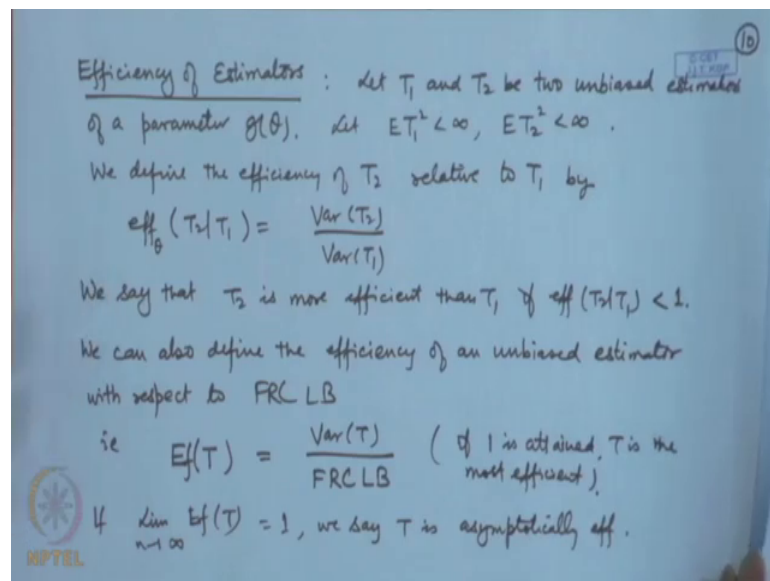 10
Efficiency of Estimators : Let T₁ and T₂ be two unbiased estimators
of a parameter g(θ). Let ET₁² < ∞, ET₂² < ∞ .
We define the efficiency of T₂ relative to T₁ by
eff_θ (T₂|T₁) = Var(T₂) / Var(T₁)
We say that T₂ is more efficient than T₁ if eff (T₂|T₁) < 1.
We can also define the efficiency of an unbiased estimator
with respect to FRC LB
ie Ef(T) = Var(T) / FRC LB ( If 1 is attained, T is the
most efficient ).
If Lim n→∞ Ef(T) = 1, we say T is asymptotically eff.
NPTEL